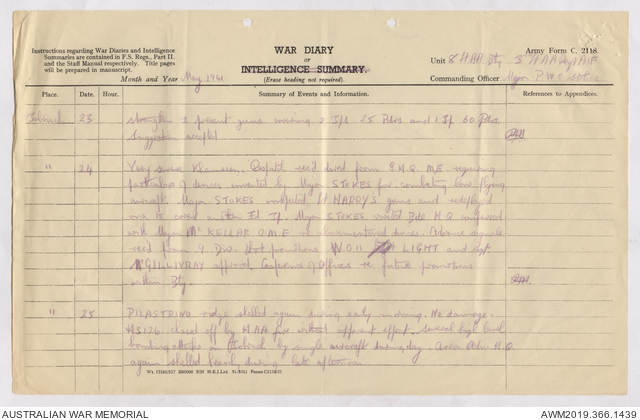 Instructions regarding War Diaries and Intelligence
Summaries are contained in F.S. Regs., Part II.
and the Staff Manual respectively. Title pages
will be prepared in manuscript.
WAR DIARY
or
INTELLIGENCE SUMMARY.
(Erase heading not required).
Army Form C. 2118.
Month and Year May 1941
Unit 8 HAA Bty 3 HAA Regt AIF
Commanding Officer Major P.W. Stokes
Place. Date. Hour. Summary of Events and Information. References to Appendices.
23 strengthen 3 present guns covering 2 25 Pdrs and 1 60 Pdrs
Suggestion accepted
" 24 Very severe Khamseen. recd from G.H.Q. M.E. requiring
particulars of devices invented by Major STOKES for combating low flying
aircraft. Major STOKES inspected Lt HARDY'S guns and redeployed
one to cover Fd Major STOKES visited Bde H.Q. conferred
with Major McKELLAR O.M.E. re devices. Advance signals
recd from 9 Div. that promotions W.O.II LIGHT and Sgt
McGILLIVRAY approved. Conference of Officers re future promotions
within Bty.
" 25 PILASTRINO ridge shelled again during early morning. No damage.
HS126 chased off by HAA fire without apparent effect. Several high level
bombing attacks on by single aircraft during day. Area H.Q.
again shelled heavily during late afternoon
AUSTRALIAN WAR MEMORIAL
AWM2019.366.1439